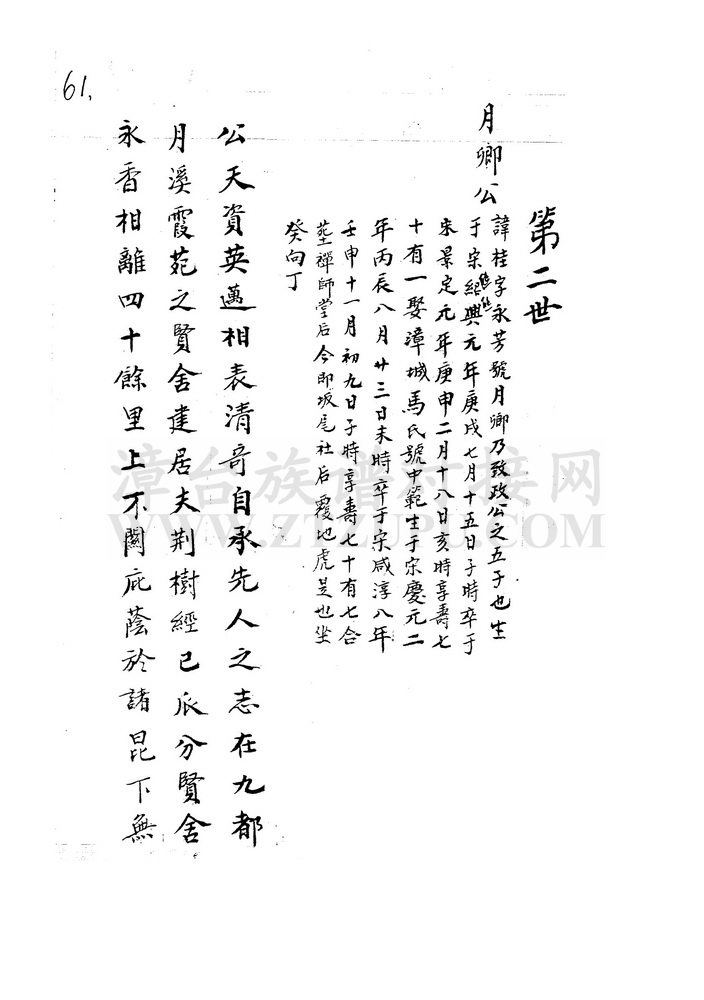 61.
第二世
月卿公
諱桂字永芳號月卿乃致政公之五子也生
于宋紹熙興元年庚戌七月十五日子時卒于
宋景定元年庚申二月十八日亥時享壽七
十有一娶漳城馬氏號中範生于宋慶元二
年丙辰八月廿三日未時卒于宋咸淳八年
壬申十一月初九日子時享壽七十有七合
塟禪師堂后今即坂尾社后覆地虎是也坐
癸向丁
公天資英邁相表清奇自承先人之志在九都
月溪霞苑之賢舍建居夫荆樹經已瓜分賢舍
永香相離四十餘里上不闕庇蔭於諸昆下無
漳台族譜对接网
WWW.ZTZUPU.COM